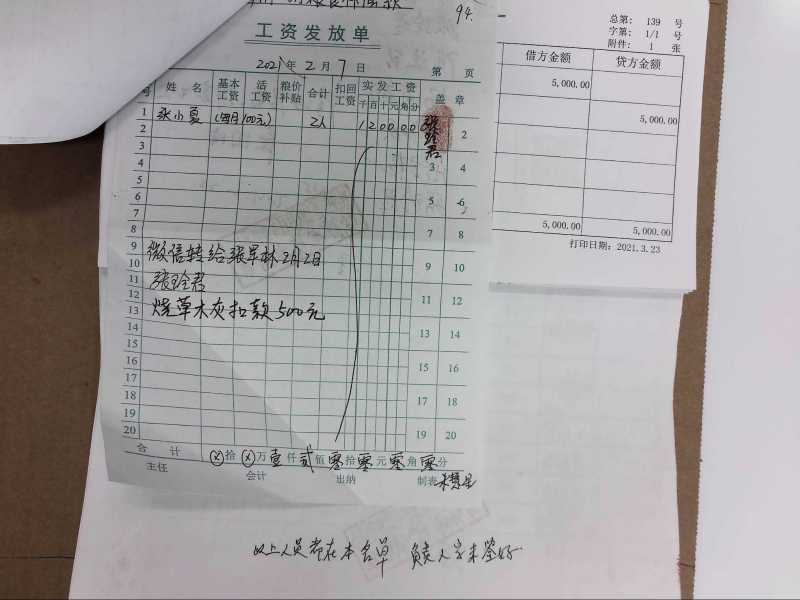 94.
工资发放单
2021年2月7日
第 页
总第: 139 号
字第: 1/1 号
附件: 1 张
借方金额 贷方金额
5,000.00
5,000.00
5,000.00 5,000.00
打印日期: 2021.3.23
号 姓名 基本工资 活工资 粮价补贴 合计 扣回工资 实发工资 千百十元角分 盖章
1 张小夏 (每月100元) 2人 120000
2 2
3 3 4
4
5 5 6
6
7 7 8
8
9 微信转给张军林2月2日 9 10
10
11 张玲君 11 12
12
13 烧草木灰扣款500元 13 14
14
15 15 16
16
17 17 18
18
19 19 20
20
合计 ⊗拾⊗万壹仟贰佰零拾零元零角零分
主任 会计 出纳 制表
以上人员都在本名单 负责人字未签好